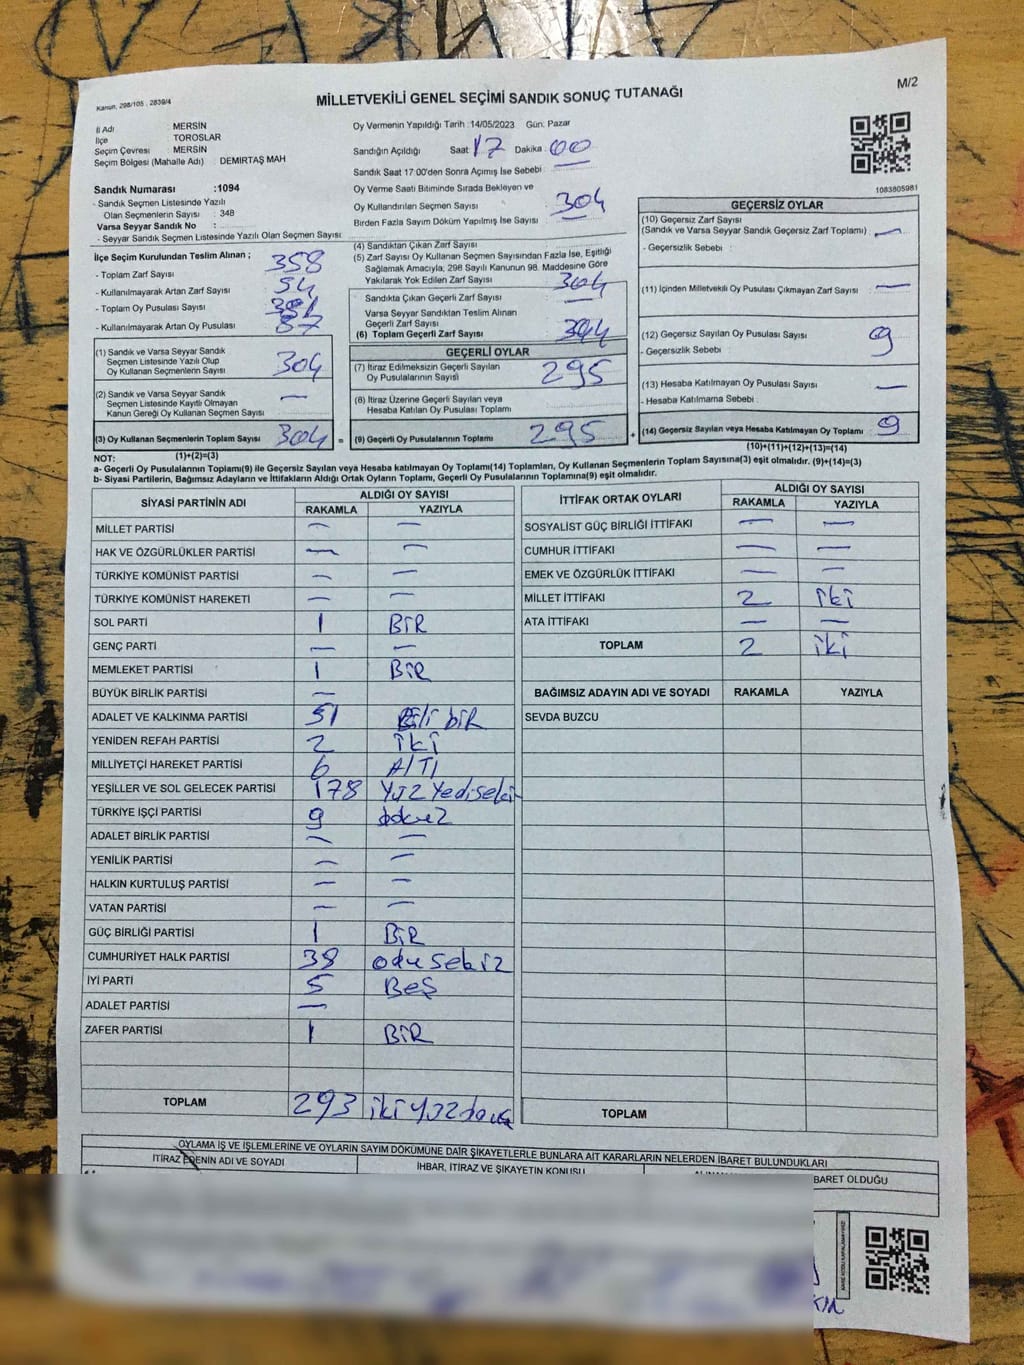 Kanun, 298/105, 2839/4
MİLLETVEKİLİ GENEL SEÇİMİ SANDIK SONUÇ TUTANAĞI
M/2
İl Adı : MERSİN
İlçe : TOROSLAR
Seçim Çevresi : MERSİN
Seçim Bölgesi (Mahalle Adı) : DEMİRTAŞ MAH
Sandık Numarası :1094
- Sandık Seçmen Listesinde Yazılı
Olan Seçmenlerin Sayısı : 348
Varsa Seyyar Sandık No :
- Seyyar Sandık Seçmen Listesinde Yazılı Olan Seçmen Sayısı:
Oy Vermenin Yapıldığı Tarih :14/05/2023 Gün: Pazar
Sandığın Açıldığı Saat 17 Dakika: 00
Sandık Saat 17.00'den Sonra Açımış İse Sebebi : —
Oy Verme Saati Bitiminde Sırada Bekleyen ve
Oy Kullandırılan Seçmen Sayısı : 304
Birden Fazla Sayım Döküm Yapılmış İse Sayısı : —
1083805981
İlçe Seçim Kurulundan Teslim Alınan ;
- Toplam Zarf Sayısı : 358
- Kullanılmayarak Artan Zarf Sayısı : 54
- Toplam Oy Pusulası Sayısı :
- Kullanılmayarak Artan Oy Pusulası : 87
(1) Sandık ve Varsa Seyyar Sandık
Seçmen Listesinde Yazılı Olup
Oy Kullanan Seçmenlerin Sayısı : 304
(2) Sandık ve Varsa Seyyar Sandık
Seçmen Listesinde Kayıtlı Olmayan
Kanun Gereği Oy Kullanan Seçmen Sayısı : —
(3) Oy Kullanan Seçmenlerin Toplam Sayısı 304 =
(1)+(2)=(3)
(4) Sandıktan Çıkan Zarf Sayısı :
(5) Zarf Sayısı Oy Kullanan Seçmen Sayısından Fazla İse, Eşitliği
Sağlamak Amacıyla, 298 Sayılı Kanunun 98. Maddesine Göre
Yakılarak Yok Edilen Zarf Sayısı : 304
Sandıkta Çıkan Geçerli Zarf Sayısı : —
Varsa Seyyar Sandıktan Teslim Alınan
Geçerli Zarf Sayısı :
(6) Toplam Geçerli Zarf Sayısı : 304
GEÇERLİ OYLAR
(7) İtiraz Edilmeksizin Geçerli Sayılan
Oy Pusulalarının Sayısı : 295
(8) İtiraz Üzerine Geçerli Sayılan veya
Hesaba Katılan Oy Pusulası Toplamı :
(9) Geçerli Oy Pusulalarının Toplamı : 295 +
GEÇERSİZ OYLAR
(10) Geçersiz Zarf Sayısı
(Sandık ve Varsa Seyyar Sandık Geçersiz Zarf Toplamı) : —
- Geçersizlik Sebebi :
(11) İçinden Milletvekili Oy Pusulası Çıkmayan Zarf Sayısı : —
(12) Geçersiz Sayılan Oy Pusulası Sayısı : 9
- Geçersizlik Sebebi :
(13) Hesaba Katılmayan Oy Pusulası Sayısı : —
- Hesaba Katılmama Sebebi :
(14) Geçersiz Sayılan veya Hesaba Katılmayan Oy Toplamı : 9
(10)+(11)+(12)+(13)=(14)
NOT:
a- Geçerli Oy Pusulalarının Toplamı(9) ile Geçersiz Sayılan veya Hesaba katılmayan Oy Toplamı(14) Toplamları, Oy Kullanan Seçmenlerin Toplam Sayısına(3) eşit olmalıdır. (9)+(14)=(3)
b- Siyasi Partilerin, Bağımsız Adayların ve İttifakların Aldığı Ortak Oyların Toplamı, Geçerli Oy Pusulalarının Toplamına(9) eşit olmalıdır.
SİYASİ PARTİNİN ADI ALDIĞI OY SAYISI
RAKAMLA YAZIYLA
MİLLET PARTİSİ — —
HAK VE ÖZGÜRLÜKLER PARTİSİ — —
TÜRKİYE KOMÜNİST PARTİSİ — —
TÜRKİYE KOMÜNİST HAREKETİ — —
SOL PARTİ 1 BİR
GENÇ PARTİ — —
MEMLEKET PARTİSİ 1 BİR
BÜYÜK BİRLİK PARTİSİ —
ADALET VE KALKINMA PARTİSİ 51 Elli bir
YENİDEN REFAH PARTİSİ 2 iki
MİLLİYETÇİ HAREKET PARTİSİ 6 AlTI
YEŞİLLER VE SOL GELECEK PARTİSİ 178 Yüz Yedisekiz
TÜRKİYE İŞÇİ PARTİSİ 9 dokuz
ADALET BİRLİK PARTİSİ — —
YENİLİK PARTİSİ — —
HALKIN KURTULUŞ PARTİSİ — —
VATAN PARTİSİ — —
GÜÇ BİRLİĞİ PARTİSİ 1 BİR
CUMHURİYET HALK PARTİSİ 38 otuz sekiz
İYİ PARTİ 5 BEŞ
ADALET PARTİSİ —
ZAFER PARTİSİ 1 BİR
TOPLAM 293 iki yüz
İTTİFAK ORTAK OYLARI ALDIĞI OY SAYISI
RAKAMLA YAZIYLA
SOSYALİST GÜÇ BİRLİĞİ İTTİFAKI — —
CUMHUR İTTİFAKI — —
EMEK VE ÖZGÜRLÜK İTTİFAKI — —
MİLLET İTTİFAKI 2 iki
ATA İTTİFAKI — —
TOPLAM 2 iki
BAĞIMSIZ ADAYIN ADI VE SOYADI RAKAMLA YAZIYLA
SEVDA BUZCU
TOPLAM
OYLAMA İŞ VE İŞLEMLERİNE VE OYLARIN SAYIM DÖKÜMÜNE DAİR ŞİKAYETLERLE BUNLARA AİT KARARLARIN NELERDEN İBARET BULUNDUKLARI
İTİRAZ EDENİN ADI VE SOYADI
İHBAR, İTİRAZ VE ŞİKAYETİN KONUSU
BARET OLDUĞU